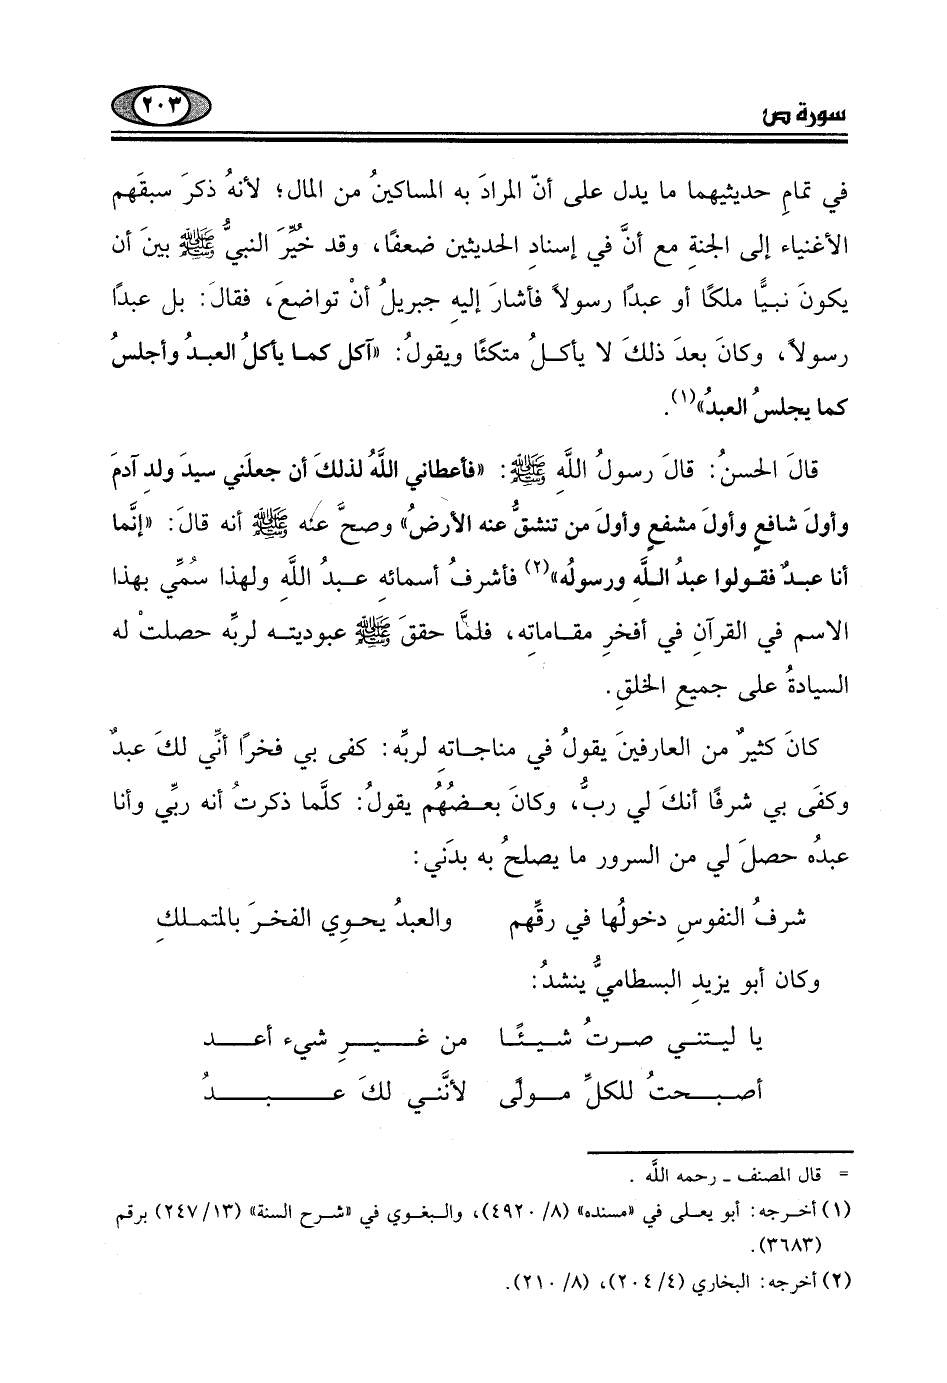 سورة ص
٢٠٣
في تمامِ حديثيهما ما يدل على أنّ المرادَ به المساكينُ من المال؛ لأنهُ ذكرَ سبقَهم
الأغنياء إلى الجنةِ مع أنَّ في إسنادِ الحديثين ضعفًا، وقد خُيِّرَ النبيُّ ﷺ بينَ أن
يكونَ نبيًّا ملكًا أو عبدًا رسولاً فأشارَ إليهِ جبريلُ أنْ تواضعَ، فقالَ: بل عبدًا
رسولاً، وكانَ بعدَ ذلكَ لا يأكلُ متكئًا ويقولُ: «آكل كما يأكلُ العبدُ وأجلسُ
كما يجلسُ العبدُ»(١).
قالَ الحسنُ: قالَ رسولُ اللَّهِ ﷺ: «فأعطاني اللَّهُ لذلكَ أن جعلَني سيدَ ولدِ آدمَ
وأولَ شافعٍ وأولَ مشفعٍ وأولَ من تنشقُّ عنه الأرضُ» وصحَّ عنه ﷺ أنه قالَ: «إنَّما
أنا عبدٌ فقولوا عبدُ اللَّهِ ورسولُه»(٢) فأشرفُ أسمائهِ عبدُ اللَّهِ ولهذا سُمِّي بهذا
الاسم في القرآنِ في أفخرِ مقاماتِه، فلمَّا حققَ ﷺ عبوديته لربِّه حصلتْ له
السيادةُ على جميعِ الخلقِ.
كانَ كثيرٌ من العارفينَ يقولُ في مناجاتهِ لربِّه: كفى بي فخرًا أنِّي لكَ عبدٌ
وكفَى بي شرفًا أنكَ لي ربٌّ، وكانَ بعضُهُم يقولُ: كلَّما ذكرتُ أنه ربِّي وأنا
عبدُه حصلَ لي من السرور ما يصلحُ به بدَني:
شرفُ النفوسِ دخولُها في رقِّهم والعبدُ يحوِي الفخرَ بالمتملكِ
وكان أبو يزيدِ البسطاميُّ ينشدُ:
يا ليتني صرتُ شيئًا من غيرِ شيء أعد
أصبحتُ للكلِّ مولًى لأنَّني لكَ عبدُ
= قال المصنف ـ رحمه اللَّه .
(١) أخرجه: أبو يعلى في «مسنده» (٨/ ٤٩٢٠)، والبغوي في «شرح السنة» (١٣/ ٢٤٧) برقم
(٣٦٨٣).
(٢) أخرجه: البخاري (٤/ ٢٠٤)، (٨/ ٢١٠).